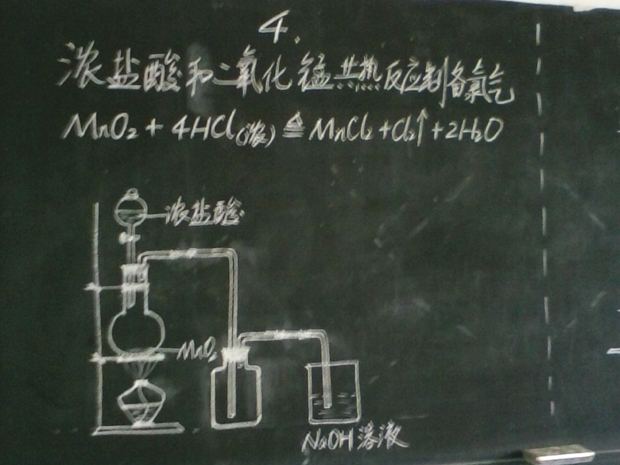 4.
浓盐酸和二氧化锰共热反应制备氯气
MnO₂ + 4HCl(浓) ≜ MnCl₂ + Cl₂↑ + 2H₂O
浓盐酸
MnO₂
NaOH溶液